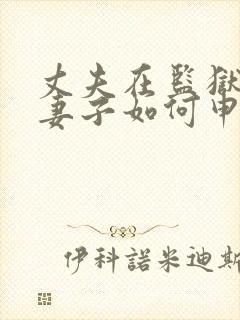 丈夫在監獄
妻子如何申
伊科諾米迪斯